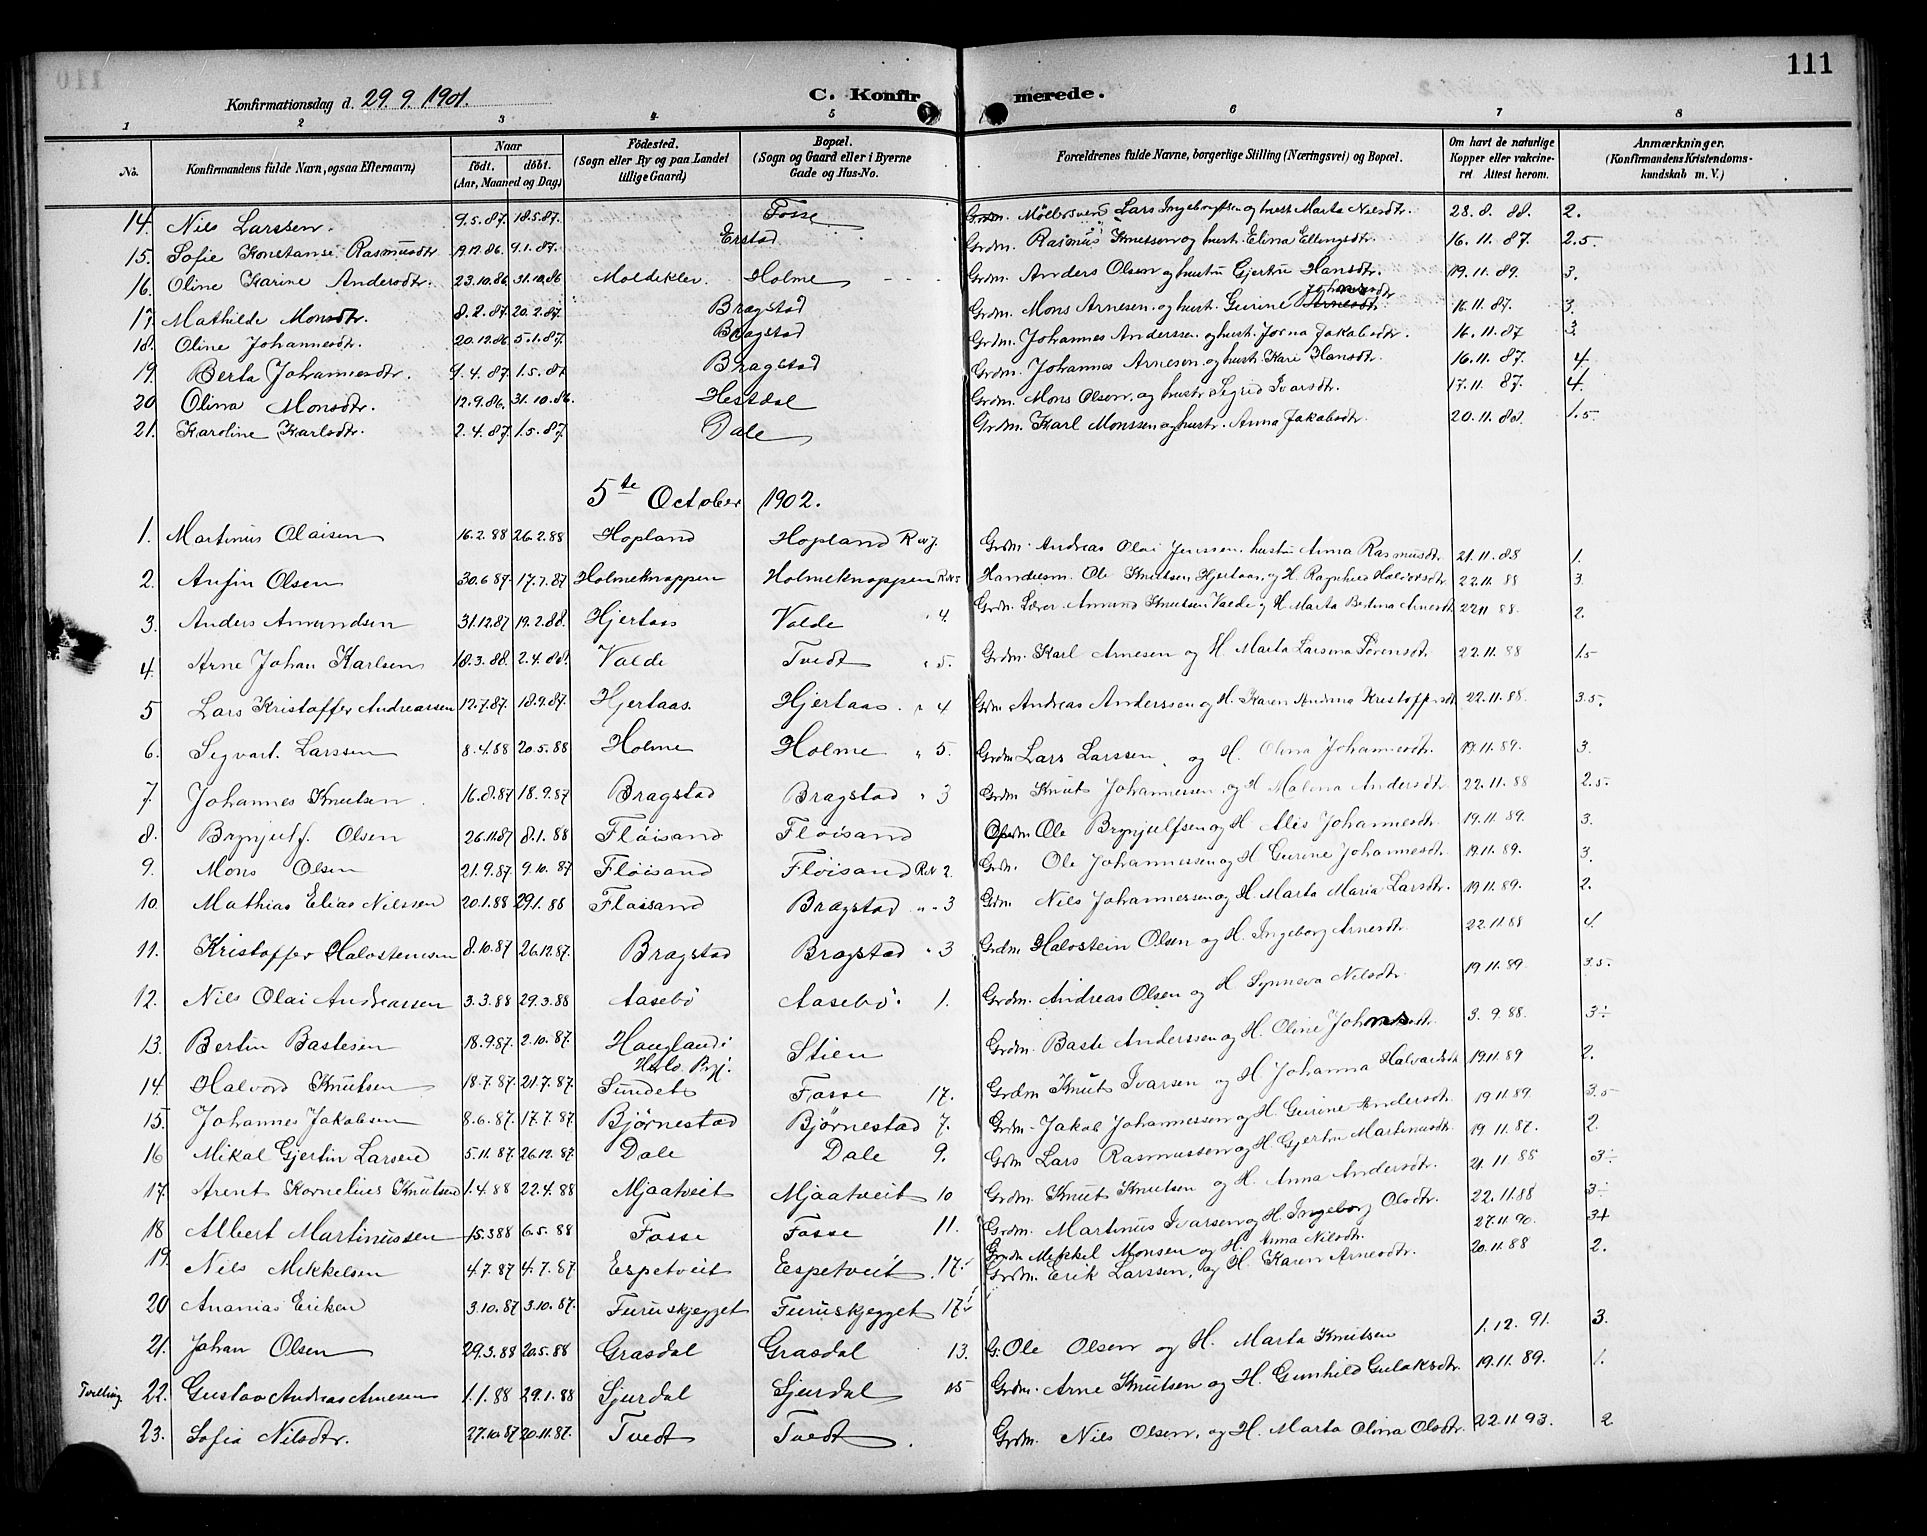 111
Konfirmationsdag d. 29.9.1901.
C. Konfirmerede.
1 2 3 4 5 6 7 8
No. Konfirmandens fulde Navn, ogsaa Efternavn) Naar født. døbt. (Aar, Maaned og Dag) Fødested. (Sogn eller By og paa Landet tillige Gaard) Bopæl. (Sogn og Gaard eller i Byerne Gade og Hus-No. Forældrenes fulde Navne, borgerlige Stilling (Næringsvei) og Bopæl. Om havt de naturlige Kopper eller vakcineret Attest herom. Anmærkninger. (Konfirmandens Kristendomskundskab m. V.)
14. Nils Larssen. 9.5.87. 18.5.87. Fosse Møllersvend Lars Ingebrigtsen og hust Marta Nilsdtr. 28.8.88. 2.
15. Sofie Konstanse Rasmusdtr 19.12.86. 9.1.87. Erstad Grdm. Rasmus Knutsen og hust. Elina Ellingsdtr. 16.11.87. 2.5.
16. Oline Karine Andersdtr. 23.10.86 31.10.86 Moldeklev Holme Grdm. Anders Olsen og hustru Gjertru Hansdtr. 19.11.89. 3.
17. Mathilde Monsdtr. 8.2.87. 20.2.87. Bragstad Grdm. Mons Arnesen og hust. Gurine Johnsdtr 16.11.87. 3.
18. Oline Johannesdtr. 20.12.86 5.1.87. Bragstad Grdm. Johannes Anderssen og hust. Jorna Jakobsdtr. 16.11.87 3.
19. Berta Johannesdtr. 9.4.87. 1.5.87 Bragstad Grdm. Johannes Arnesen og hust. Kari Hansdtr. 16.11.87. 4
20 Olina Monsdtr. 12.9.86. 31.10.86. Hestdal Grdm. Mons Olsen og hustr Sigrid Ivarsdtr. 17.11 87. 4.
21. Karoline Karlsdtr. 2.4.87. 1.5.87. Dale Grdm. Karl Monssen og hustr. Anna Jakobsdtr. 20.11.88. 1.5
5te October 1902.
1. Martinus Olaisen 16.2.88 26.2.88 Hopland Hopland Grdm. Andreas Olai Jenssen. hustru Anna Rasmusdtr 21.11.88 1.
2. Anfin Olsen 30.6.87. 17.7.87 Holmeknappen Holmeknappen Handelsm. Ole Knutsen Hjertaas og H. Ragnhild Halvorsdtr 22.11.88 3.
3. Anders Amundsen 31.12.87 19.2.88. Hjertaas Valde " 4. Grdm. Lærer Amund Knutsen Valde og H. Marta Bertina Arnesdtr 22.11.88. 2.
4. Arne Johan Karlsen 18.3.88. 2.4.88. Valde Tvedt " 5. Grdm. Karl Arnesen og H. Marta Larsina Sørensdtr. 22.11.88 1.5
5 Lars Kristoffer Andreassen 12.7.87. 18.9.87. Hjertaas. Hjertaas. " 4 Grdm Andreas Anderssen og H. Karen Andrina Kristoffersdtr 22.11.88. 3.5.
6. Segvart. Larssen 8.4.88 20.5.88 Holme Holme " 5. Grdm Lars Larssen, og H. Olina Johannesdtr. 19.11.89. 3.
7. Johannes Knutsen 16.8.87 18.9.87 Bragstad Bragstad " 3 Grdm Knut Johannessen og H Malena Andersdtr 22.11.88 2.5.
8. Brynjulf. Olsen 26.11.87 8.1.88 Fløisand Fløisand Grdm Ole Brynjulfsen og H. Alis Johannesdtr. 19.11.89. 3.
9. Mons Olsen 21.9.87. 9.10.87 Fløisand Fløisand 2. Grdm. Ole Johannessen og H Gurine Johannesdtr 19.11.89. 3.
10. Mathias Elias Nilssen 20.1.88 29.1.88 Fløisand Bragstad " " 3 Grdm Nils Johannessen og H. Marta Maria Larsdtr. 19.11.89. 2.
11. Kristoffer Halvsteinsen 8.10.87 26.12.87. Bragstad Bragstad " 3 Grdm. Halvstein Olsen og H. Ingeborg Arnesdtr. 22.11.88 4.
12. Nils Olai Andreassen 3.3.88 29.3.88 Aasebø Aasebø. 1. Grdm. Andreas Olsen og H Synneva Nilsdtr. 19.11.89. 3.5.
13. Bertin Bastesen 18.9.87. 2.10.87. Haugland i Herlø. Prgj. Stien Grdm. Baste Anderssen og H. Oline Johnsdtr. 3.9.88. 3÷
14. Halvord Knutsen 18.7.87. 21.7.87. Sundet Fosse 17. Grdm Knut Ivarsen og H Johanna Halvardsdtr 19.11.89 2.
15. Johannes Jakobsen 8.6.87. 17.7.87 Bjørnestad Bjørnestad 7. Grdm. Jakob Johannessen og H. Gurine Andersdtr 19.11.89. 3.5
16 Mikal Gjertin Larsen 5.11.87. 26.12.87 Dale Dale 9. Grdm Lars Rasmussen og H Gjertru Martinusdtr 19 11.87. 2.
17. Arent Kornelius Knutsen 1.4.88 22.4.88 Mjaatveit Mjaatveit 10 Grdm. Knut Knutsen og H. Anna Andersdtr. 21.11.88 3÷
18 Albert Martinussen 15.3.88 6.5.88 Fosse Fosse 11. Grdm. Martinus Ivarsen og H. Ingeborg Olsdtr. 22.11.88 3÷
19. Nils Mikkelsen 4.7.87 4.7.87 Espetveit Espetveit 17. Grdm Mikkel Monsen og H. Anna Nilsdtr. 27.11.90. 3+
20 Ananias Eriksen 3.10.87 3.10.87. Furuskjegget Furuskjegget 17 Grdm. Erik Larssen, og H Karen Arnesdtr. 20.11.88 2.
21. Johan Olsen 29.3.88 20.5.88 Grasdal Grasdal 13. G. Ole Olsen og H. Marta Knutsen 1.12.91. 3.
Tvilling. 22. Gustav Andreas Arnesen 1.1.88 29.1.88 Sjurdal Sjurdal 15 Grdm. Arne Knutsen og H. Gunhild Gulaksdtr. 19.11.89. 1.
23. Sofia Nilsdtr. 27.10.87 20.11.87. Tvedt Tvedt. Grdm. Nils Olsen, og H. Marta Olina Olsdtr. 22.11.93. 2